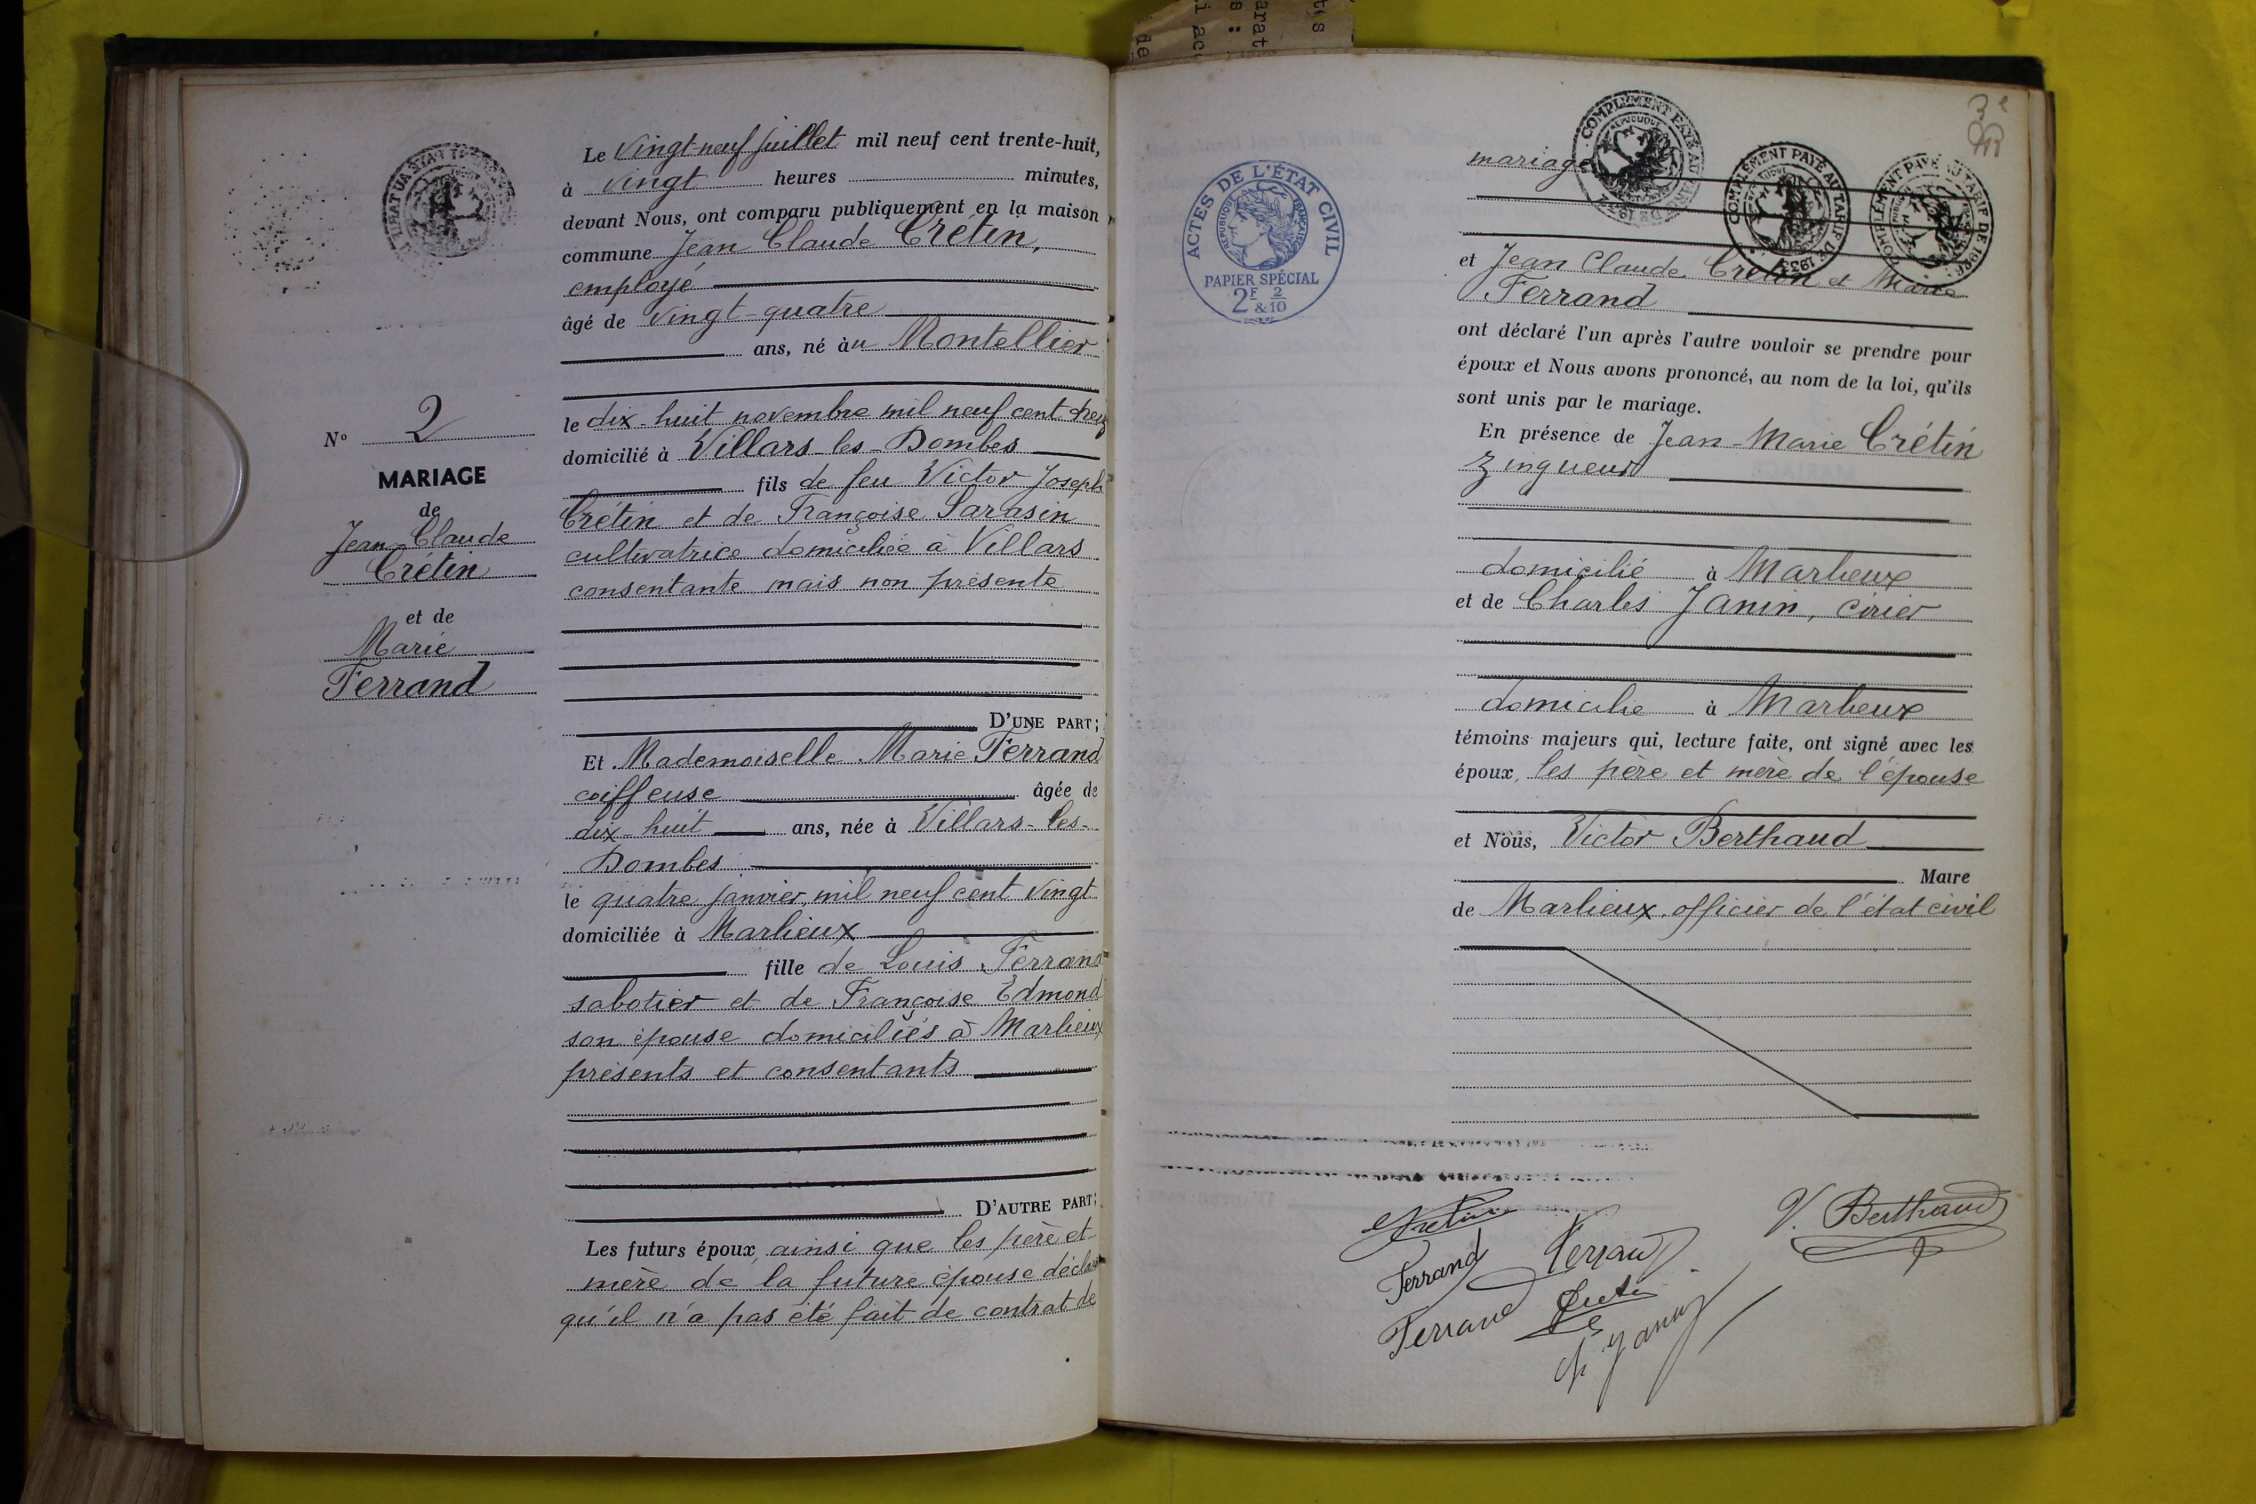 Le vingt-neuf juillet mil neuf cent trente-huit,
à vingt heures minutes,
devant Nous, ont comparu publiquement en la maison
commune Jean Claude Crétin,
employé
âgé de vingt-quatre
ans, né àu Montellier
le dix-huit novembre mil neuf cent treize
domicilié à Villars-les-Dombes
fils de feu Victor Joseph
Crétin et de Françoise Sarasin
cultivatrice domiciliée à Villars
consentante mais non présente
D'UNE PART;
Et Mademoiselle Marie Ferrand
coiffeuse âgée de
dix-huit ans, née à Villars-les-
Dombes
le quatre janvier, mil neuf cent vingt
domiciliée à Marlieux
fille de Louis Ferrand
sabotier et de Françoise Edmond
son épouse domiciliés à Marlieux
présents et consentants
D'AUTRE PART;
Les futurs époux ainsi que les père et
mère de la future épouse déclarent
qu'il n'a pas été fait de contrat de
No 2
MARIAGE
de
Jean Claude
Crétin
et de
Marie
Ferrand
ACTES DE L'ÉTAT CIVIL
RÉPUBLIQUE FRANÇAISE
PAPIER SPÉCIAL
2F & 2/10
COMPLÉMENT PAYÉ AU TARIF DE
COMPLÉMENT PAYÉ AU TARIF DE
COMPLÉMENT PAYÉ AU TARIF DE
3e
mariage
et Jean Claude Crétin et Marie
Ferrand
ont déclaré l'un après l'autre vouloir se prendre pour
époux et Nous avons prononcé, au nom de la loi, qu'ils
sont unis par le mariage.
En présence de Jean-Marie Crétin
zingueur
domicilié à Marlieux
et de Charles Janin, cirier
domicilié à Marlieux
témoins majeurs qui, lecture faite, ont signé avec les
époux, les père et mère de l'épouse
et Nous, Victor Berthaud
Maire
de Marlieux, officier de l'état civil
Cretin
V. Berthaud
Ferrand
Ferrand
Ferrand
Ch Janin